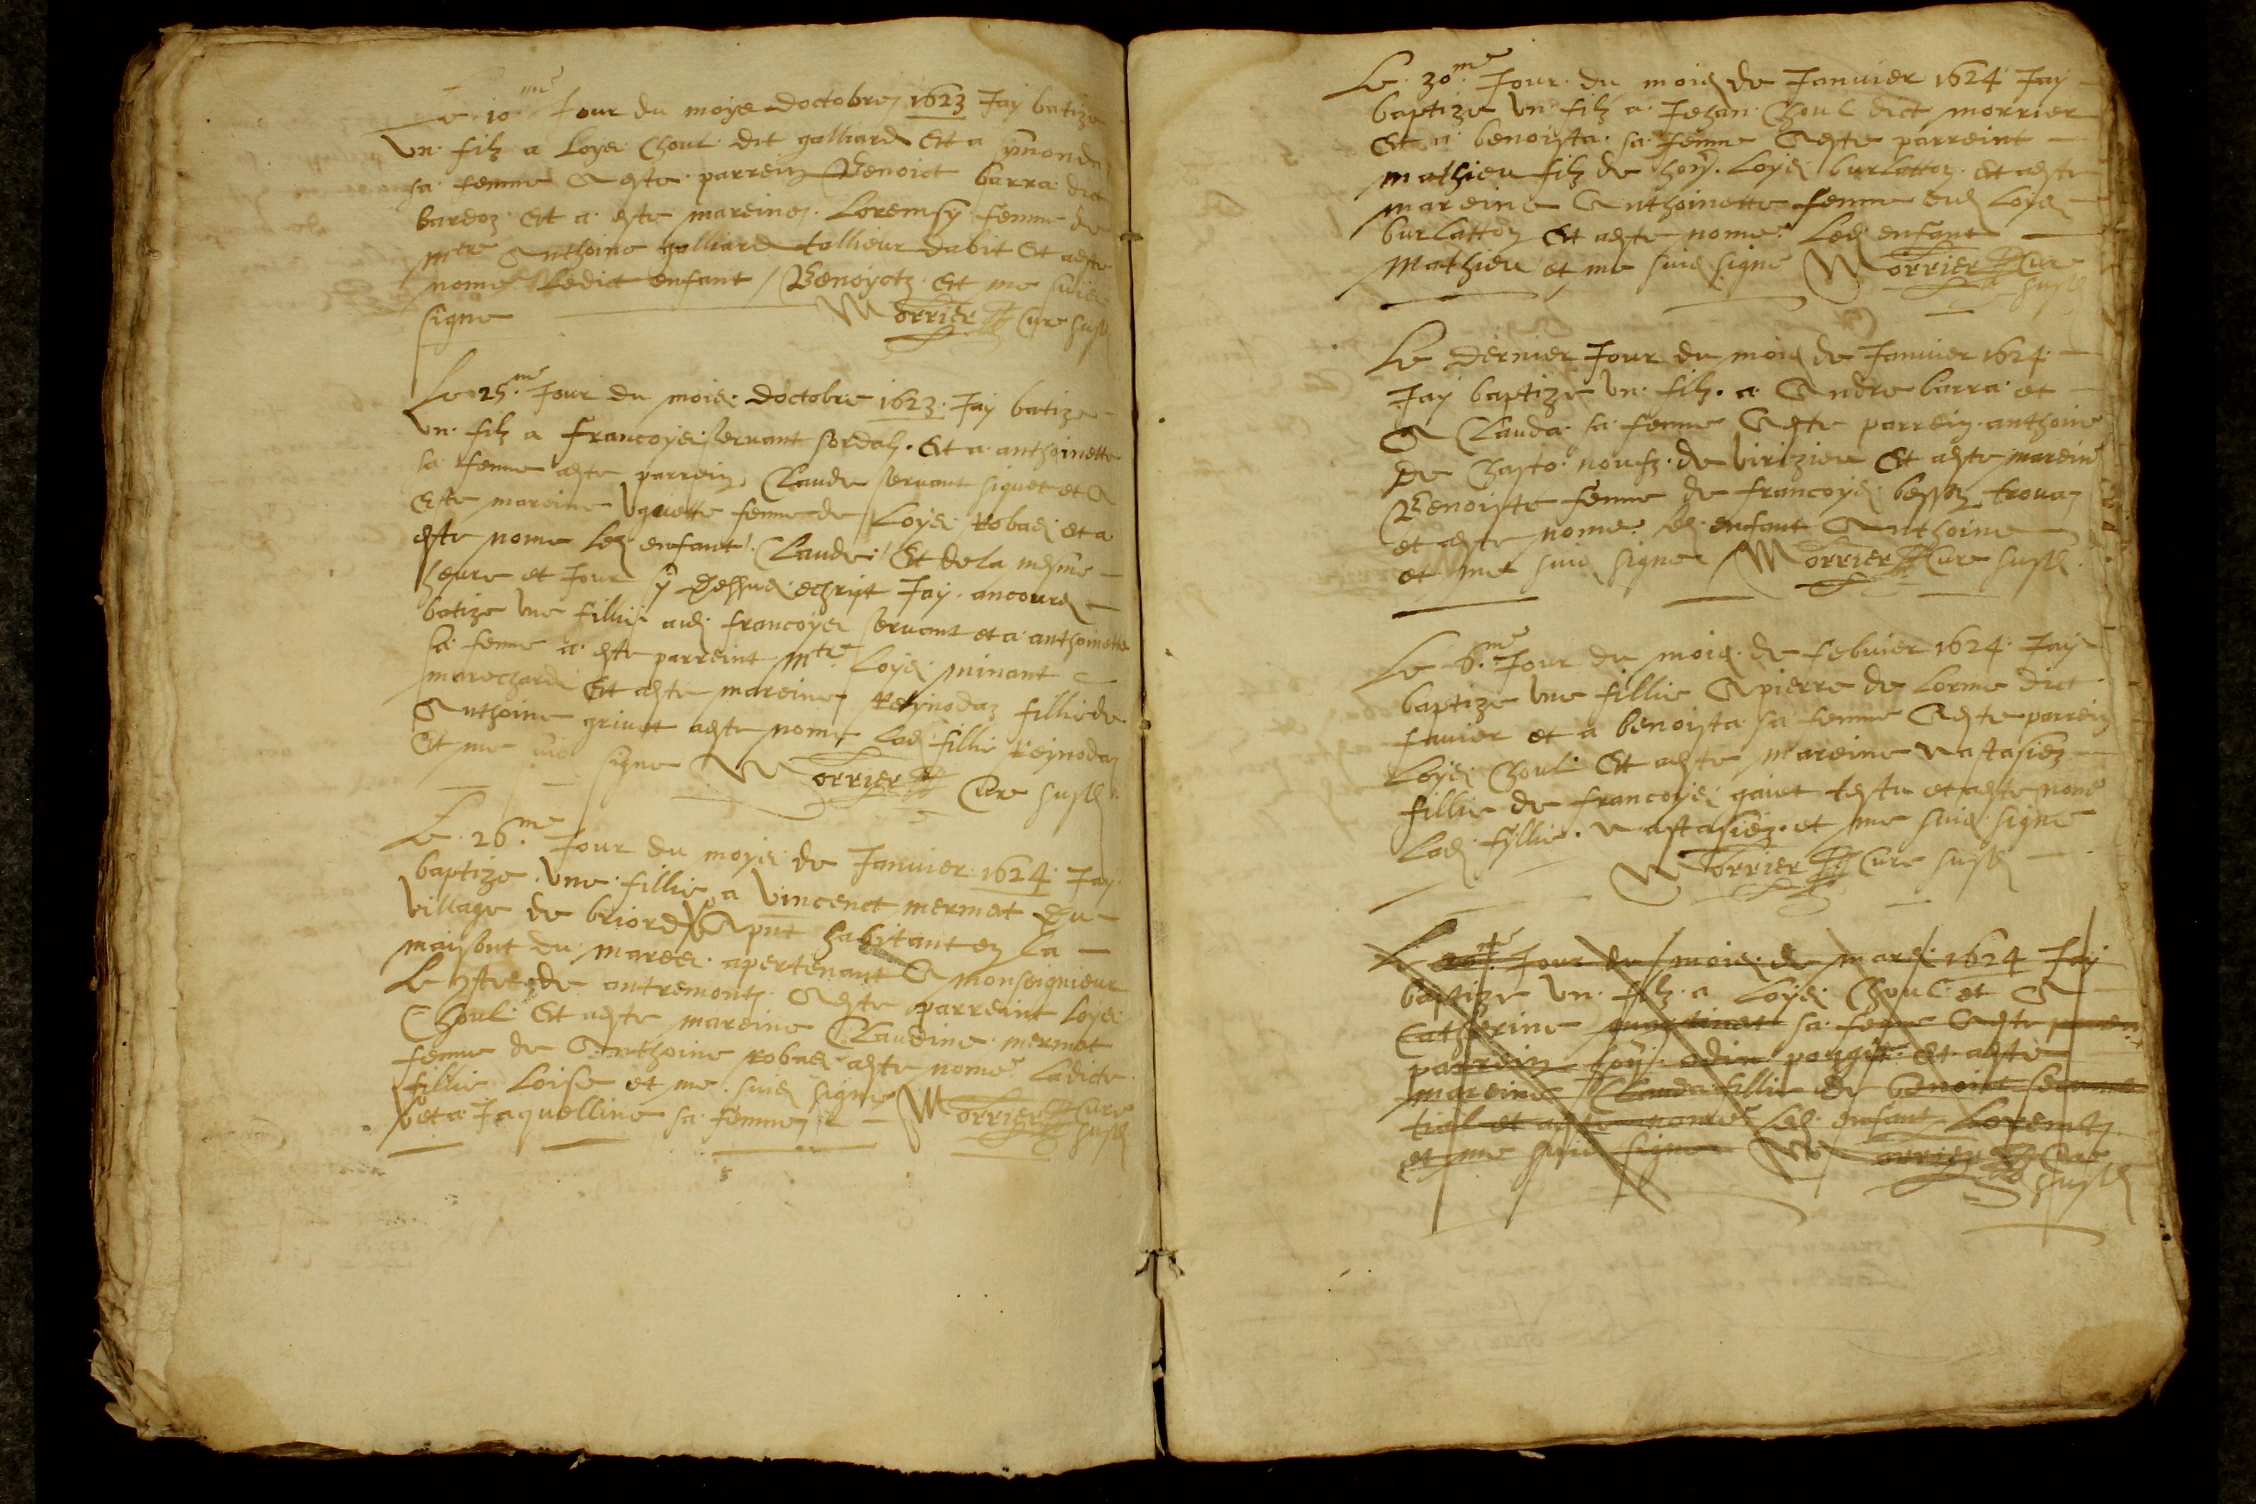 Le 10me Jour du moys doctobre 1623 Jay batize
un filz a Loys Choul dit galliard Et a ymonda
sa femme A este parrein Benoict barra dict
bardoz Et a este mareine Loremsy femme de
mtre Anthoine galliard tallieur dabit Et aeste
nome Ledict enfant / Benoyctz Et me suis
signe Morrier Cure susd
Le 25.me Jour du mois doctobre 1623 Jay batize
un filz a francoys servant sordalz Et a anthoinette
sa femme aeste parrein Claude servant siguet et A
Este mareine Uguette femme de Loys Robas et a
este nome led enfant Claude Et de la mesme
heure et Jour y dessus echript Jay ancoures
batize une fillie aud francoys servant et a anthoinette
sa femme a este parreint mtre Loys minant
marechard Et aeste mareine Reynodaz fillie de
Anthoine grivet aeste nome Lad fillie Reynodaz
Et me suis signe Morrier Cure susd
Le 26.me Jour du moys de Janvier 1624 Jay
baptize une fillie a Vincenct mermet du
village de briord Apnt habitant en la
maysont du mares apertenant A monseignieur
Le de antremontz Aeste parreint Loys
Choul Et aeste mareine Claudine mermet
femme de Anthoine Robas aeste nome Ladicte
fillie Loise et me suis signe Morrier Cure
et a Jaquelline sa femme susd
Le 30.me Jour du mois de Janvier 1624 Jay
baptize un filz a Jehan Choul dict morrier
Et a benoista sa femme Aeste parreint
mathieu filz de hoy. Loys burlatton et aeste
mareine Anthoinette femme dud Loys
burlatton Et aeste nome Led enfant
Mathieu et me suis signe Morrier Cure
susd
Le dernier Jour du mois de Janvier 1624
Jay baptize un filz a Andre barra et
A Clauda sa femme Aeste parrein anthoine
de Chasto noufz de virizieu Et aeste mareine
Benoiste femme de francoys trova
et aeste nome led enfant Anthoine
et me suis signe Morrier Cure susd
Le 6.me Jour du mois de febvier 1624 Jay
baptize une fillie A pierre de Lorme dict
favier et a benoista sa femme Aeste parrein
Loys Choul Et aeste mareine nastasiez
fillie de francoys gaiet testu et aeste nome
Lad fyllie nastasiez et me suis signe
Morrier Cure susd
Le Jour du mois de mars 1624 Jay
baptize un filz a Loys Choul et A
Catherine martinet sa femme Aeste
parrein Loys odin Et aeste
mareine Clauda fillie de benoist
et aeste nome Led enfant Lorentz
et me suis signe Morrier Cure
susd